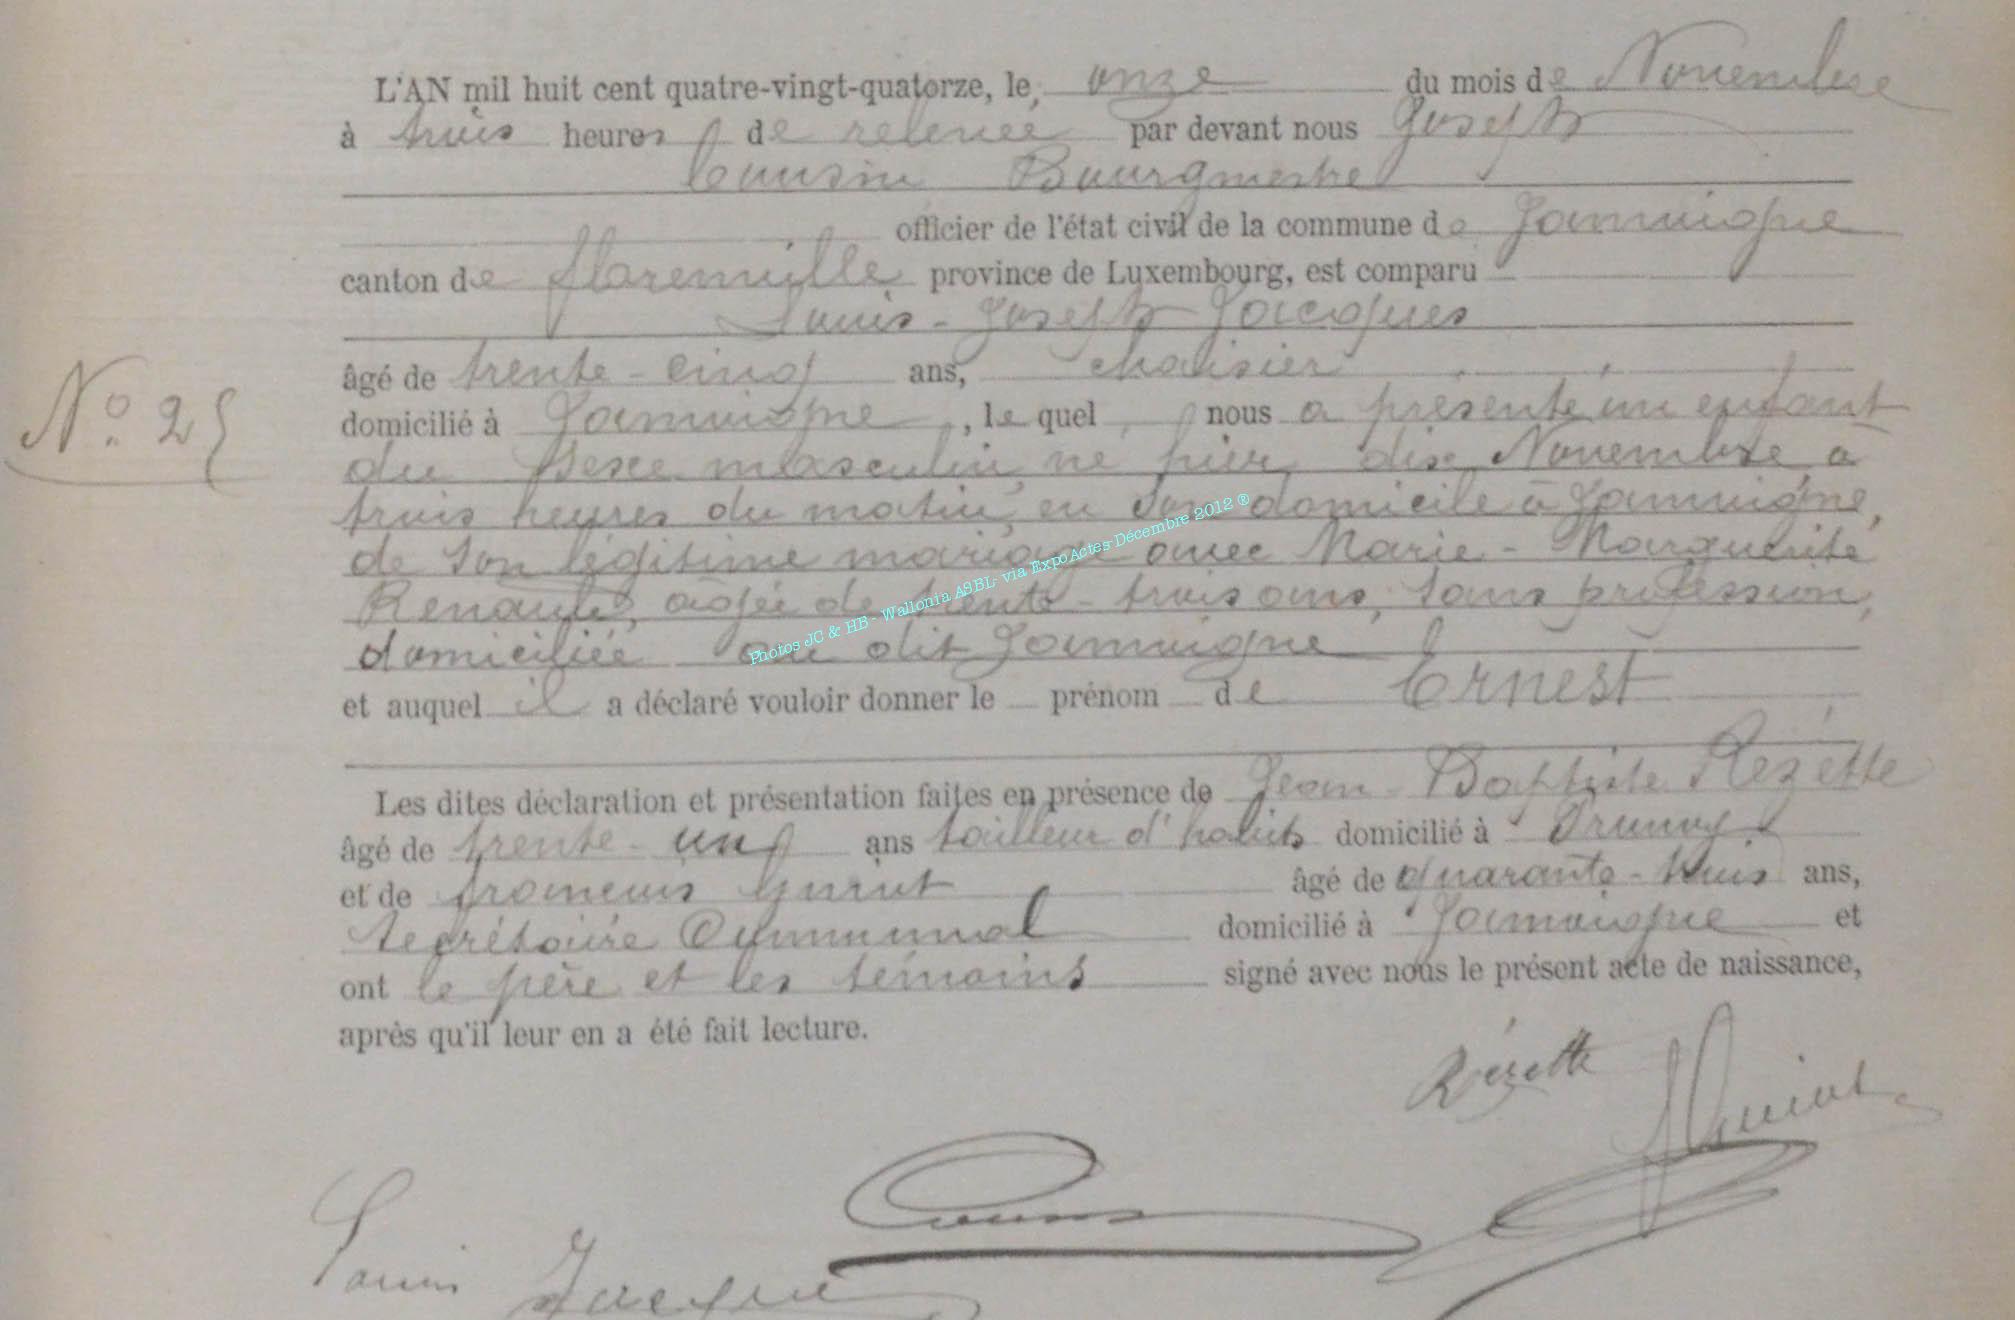 L'AN mil huit cent quatre-vingt-quatorze, le, onze du mois de Novembre
à trois heures de relevée par devant nous Joseph
Cousin Bourgmestre
officier de l'état civil de la commune de Jamoigne
canton de florenville province de Luxembourg, est comparu
Louis - Joseph Jacques
âgé de trente - cinq ans, chaisier
N° 25
domicilié à Jamoigne, le quel nous a présenté un enfant
du sexe masculin, né hier, dix Novembre à
trois heures du matin, en son domicile à Jamoigne,
de son légitime mariage avec Marie - Marguerite
Renauld, âgée de trente - trois ans, sans profession,
domiciliée au dit Jamoigne
et auquel il a déclaré vouloir donner le prénom de Ernest
Les dites déclaration et présentation faites en présence de Jean - Baptiste Rézette
âgé de trente - un ans tailleur d'habits domicilié à
et de françois âgé de quarante - trois ans,
secrétaire Communal domicilié à Jamoigne et
ont le père et les témoins signé avec nous le présent acte de naissance,
après qu'il leur en a été fait lecture.
Rézette
Cousin
Louis Jacques
Photos JC & HB - Wallonia ASBL- via ExpoActes-Décembre 2012 ®